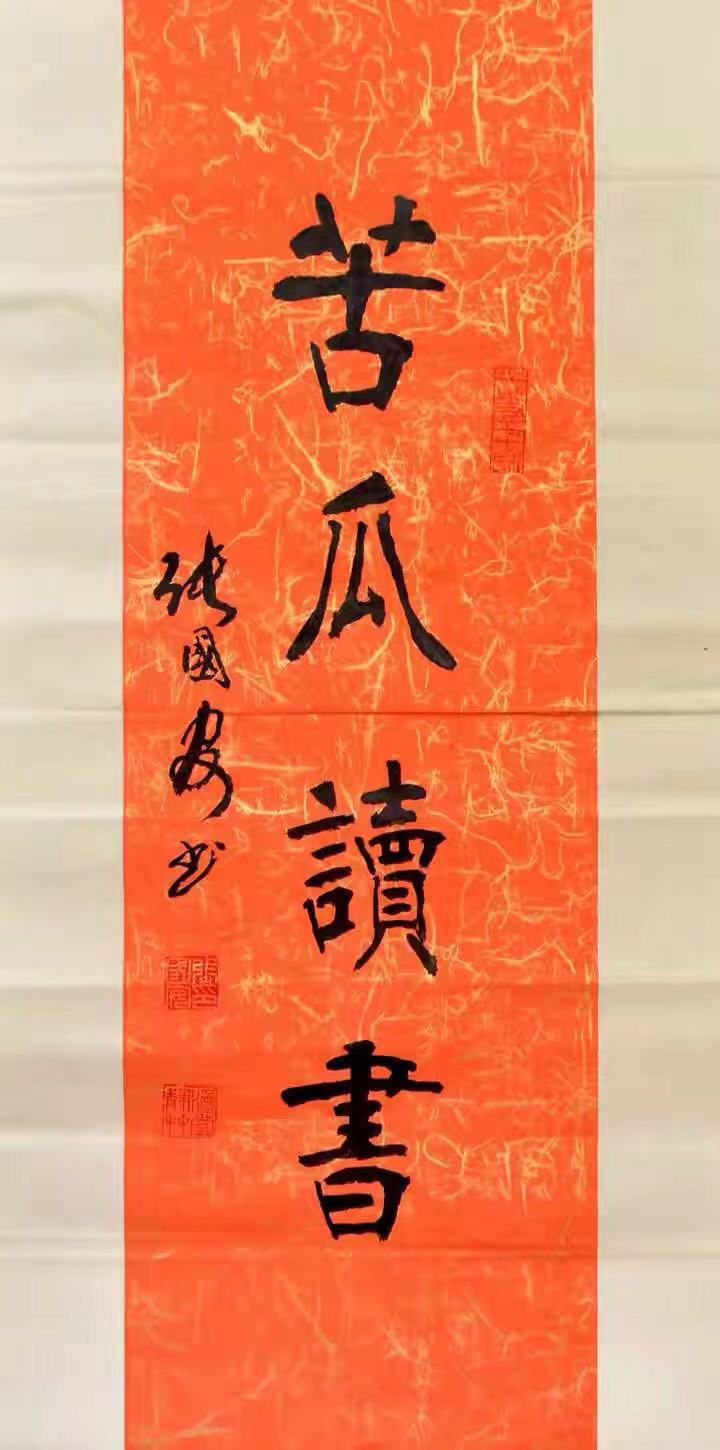 苦瓜讀書
张國安书